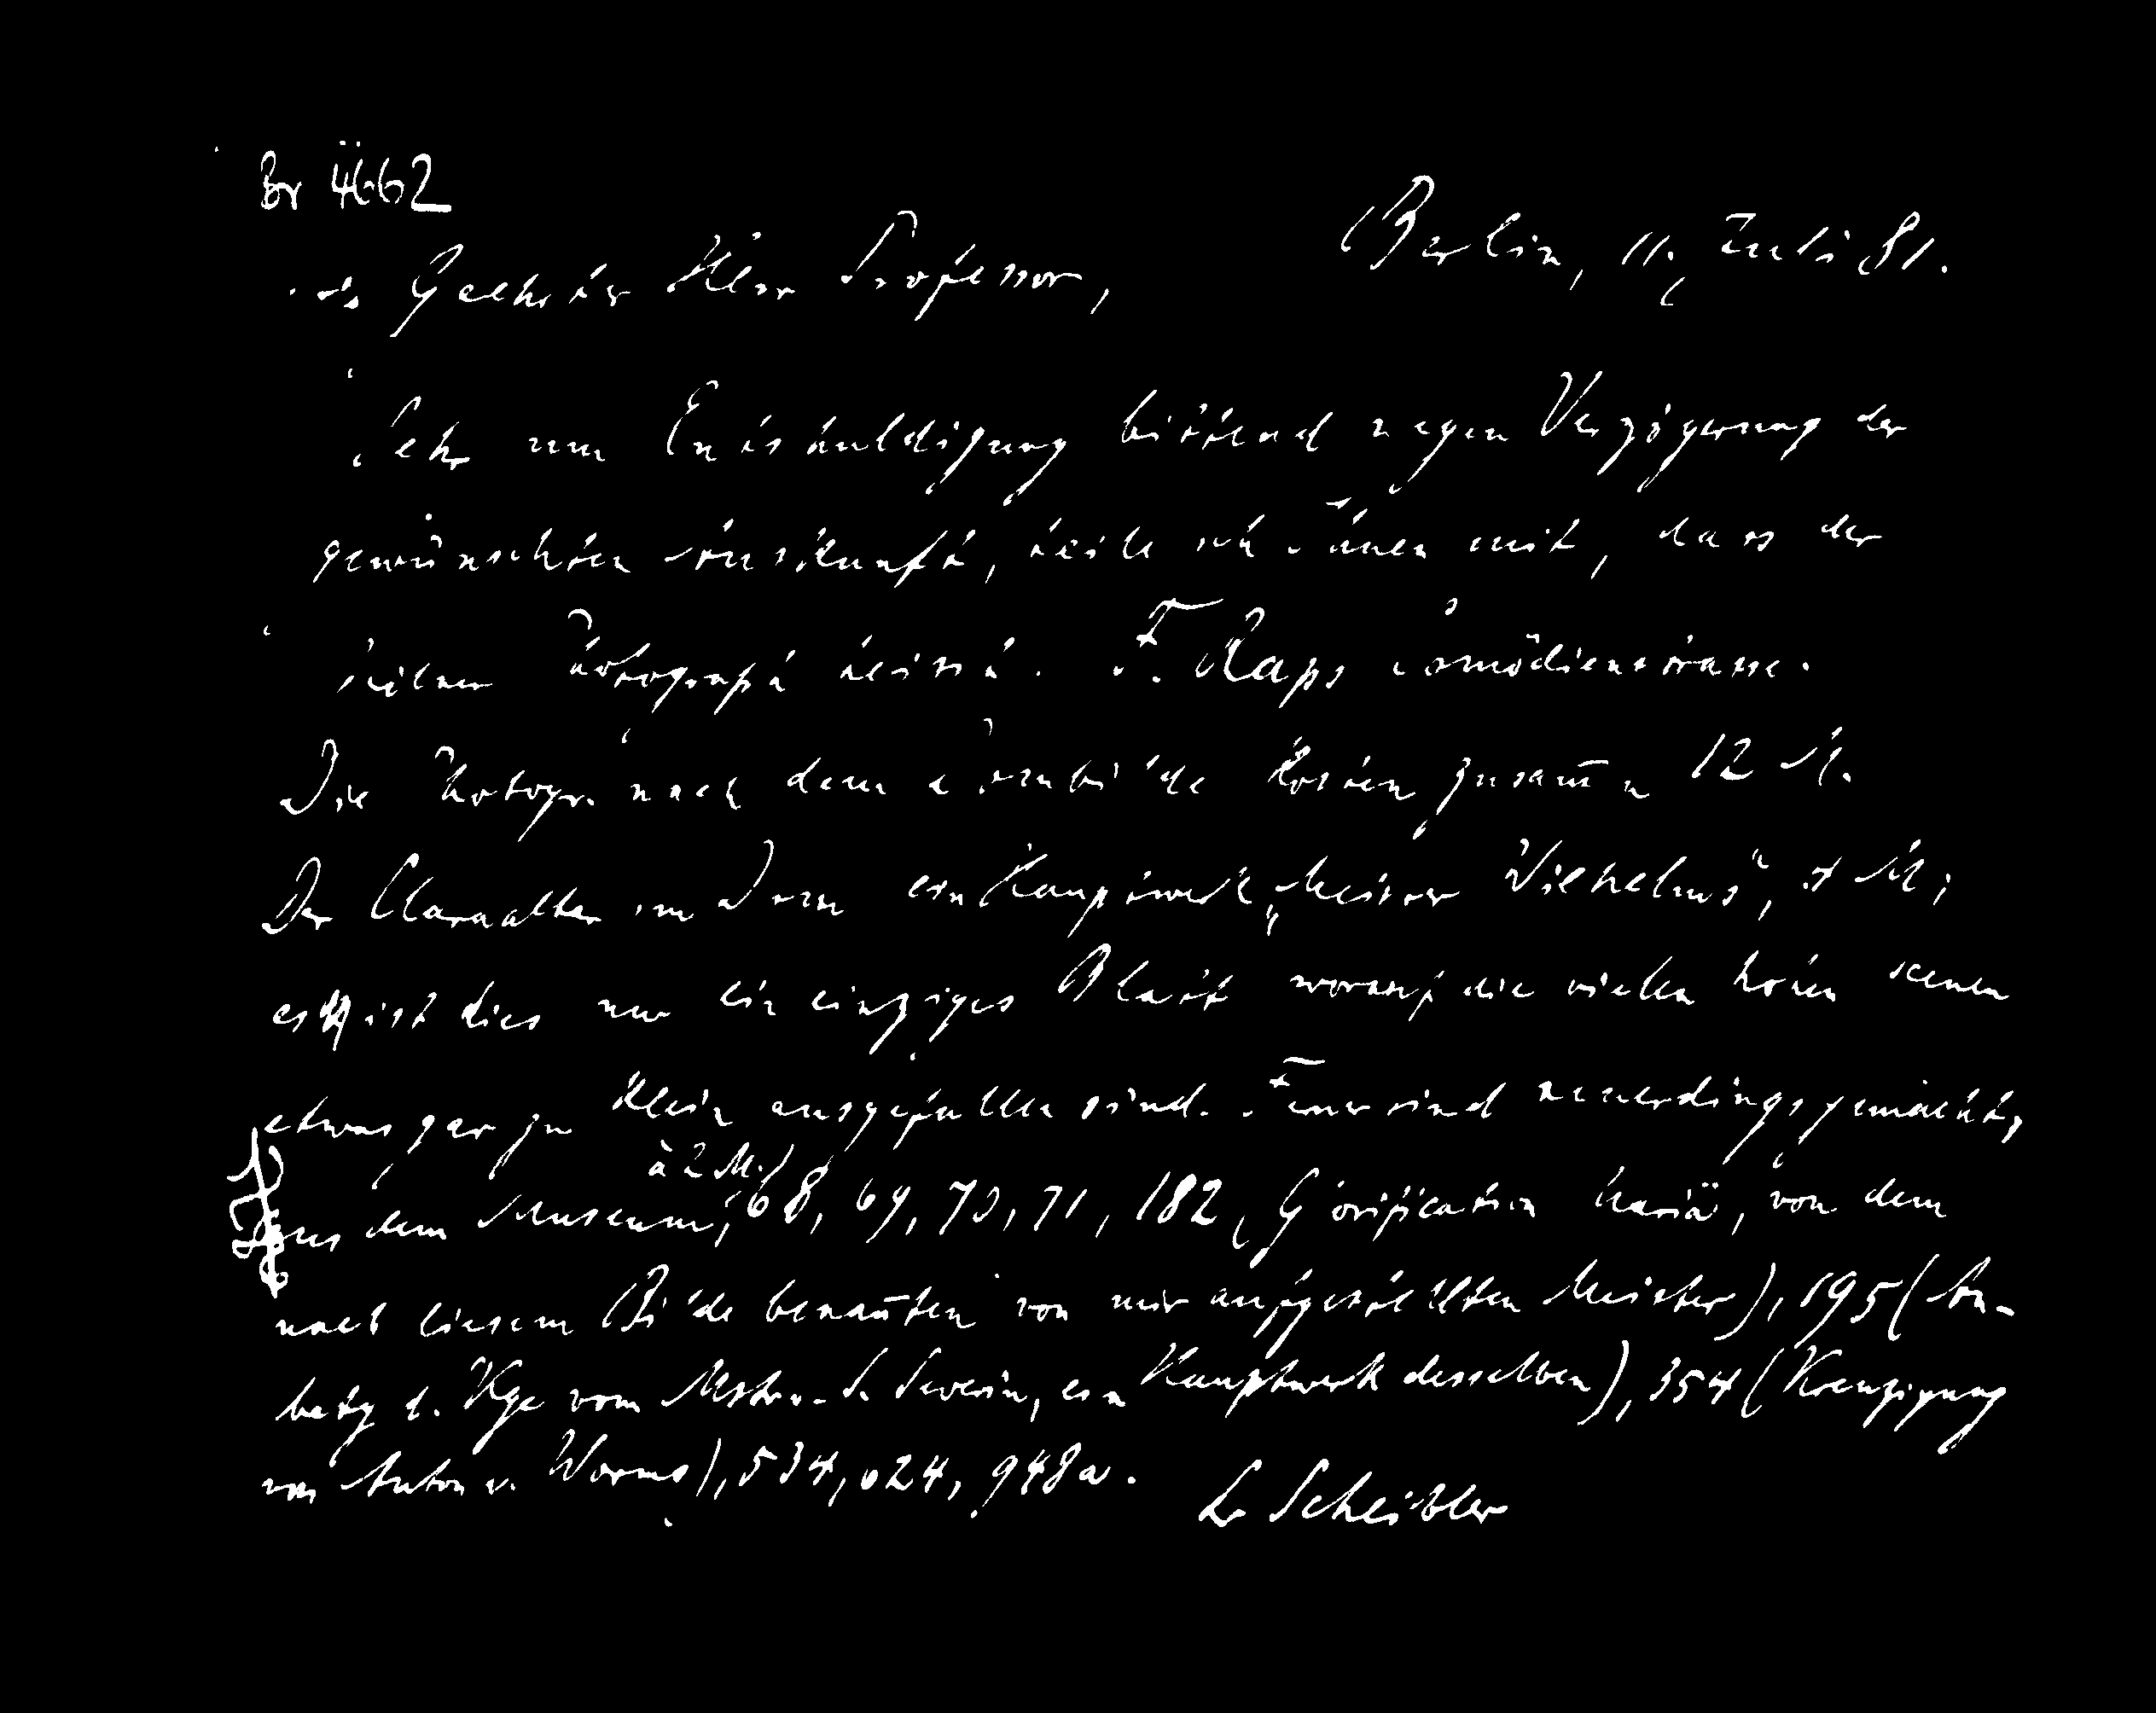 Br 4662
Berlin, 11. Juli 81.
Geehrter Herr Professor,
Sehr um Entschuldigung bittend wegen Verzögerung der
gewünschten Auskunft, teile ich Ihnen mit, dass der
Kölner Photograph heisst: F. Raps Comödienstrasse.
Die Photogr. nach dem Dombilde kosten zusam̄en 12 M.
Der Claraaltar im Dom ein Hauptwerk „Meister Wilhelms“, 4 M;
es ist dies nur ein einziges Blatt worauf die vielen scenen
etwas gar zu klein ausgefallen sind. Ferner sind neuerdings gemacht,
à 2 M.
aus dem Museum, 68, 69, 70, 71, 182 (Glorification Mariä, von dem
nach diesem Bilde benan̄ten von mir aufgestellten Meister), 195 (An-
betg d. Kge vom Mstr v. S. Severin, ein Hauptwerk desselben), 354 (Kreuzigung
von Anton v. Worms), 534, 624, 948a.
L. Scheibler